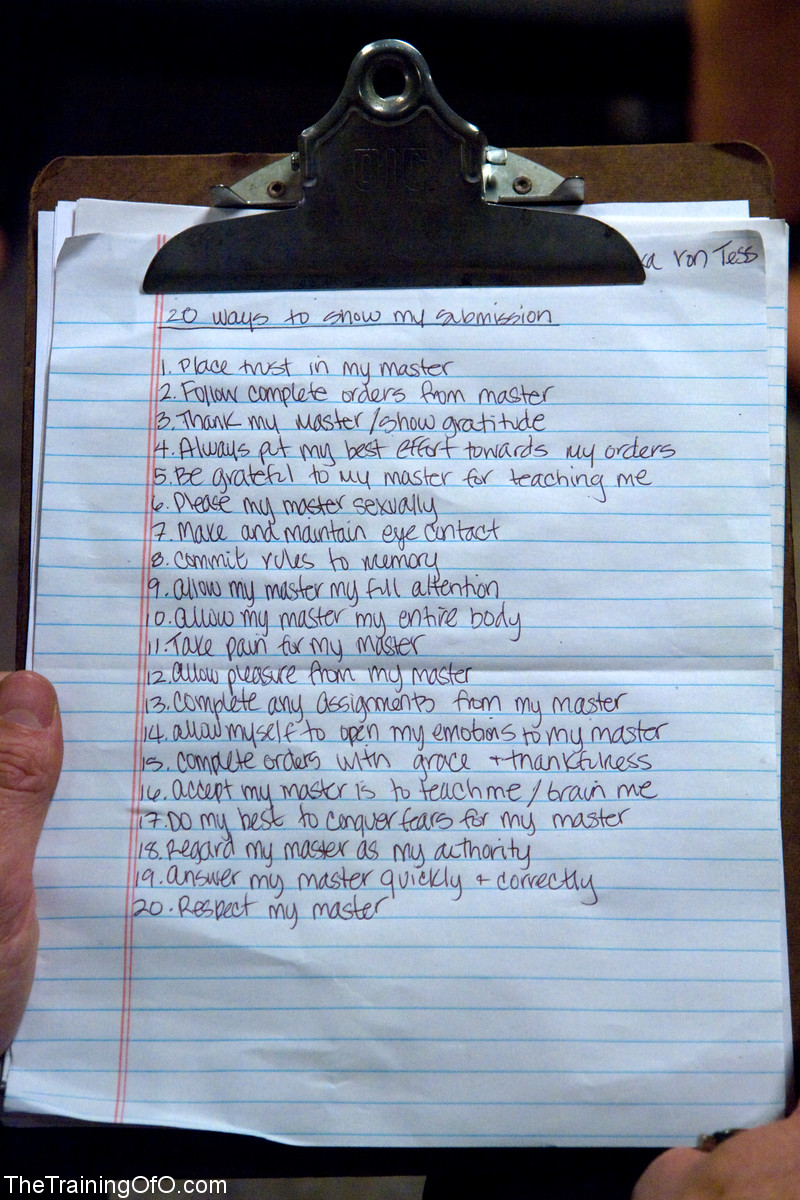 CIC
ka von Tess
20 ways to show my submission
1. Place trust in my master
2. Follow complete orders from master
3. Thank my master/show gratitude
4. Always put my best effort towards my orders
5. Be grateful to my master for teaching me
6. Please my master sexually
7. Make and maintain eye contact
8. commit rules to memory
9. allow my master my full attention
10. allow my master my entire body
11. Take pain for my master
12. allow pleasure from my master
13. complete any assignments from my master
14. allow myself to open my emotions to my master
15. complete orders with grace + thankfulness
16. accept my master is to teach me / train me
17. Do my best to conquer fears for my master
18. Regard my master as my authority
19. answer my master quickly + correctly
20. Respect my master
TheTrainingOfO.com